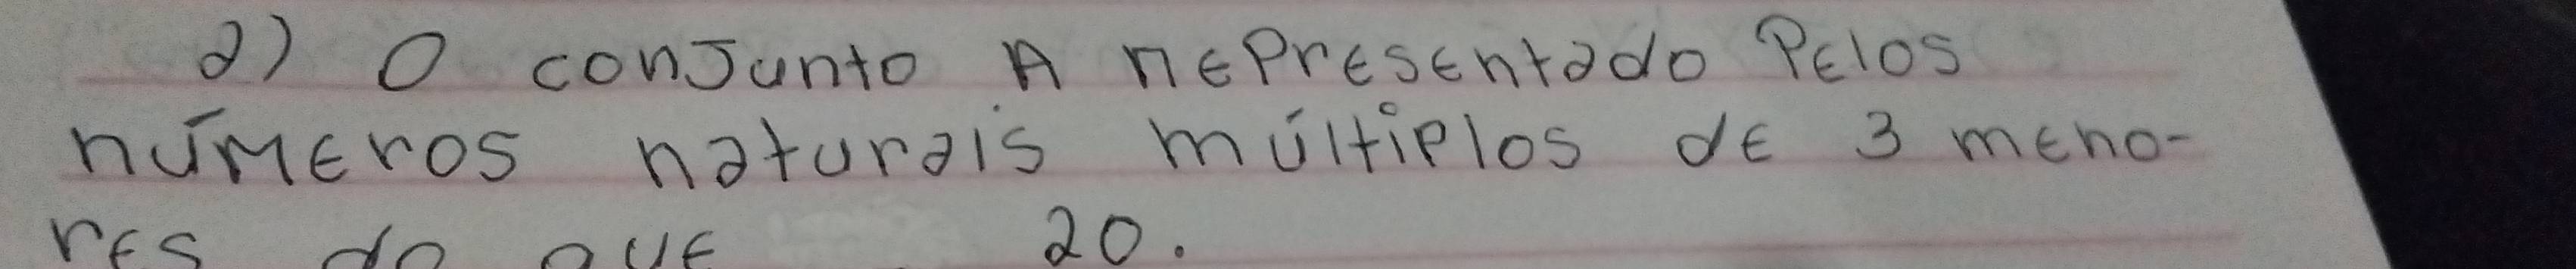 a) O conJunto A rePresentado Pelos
números naturais múltiplos de 3 meno-
res do que 20.